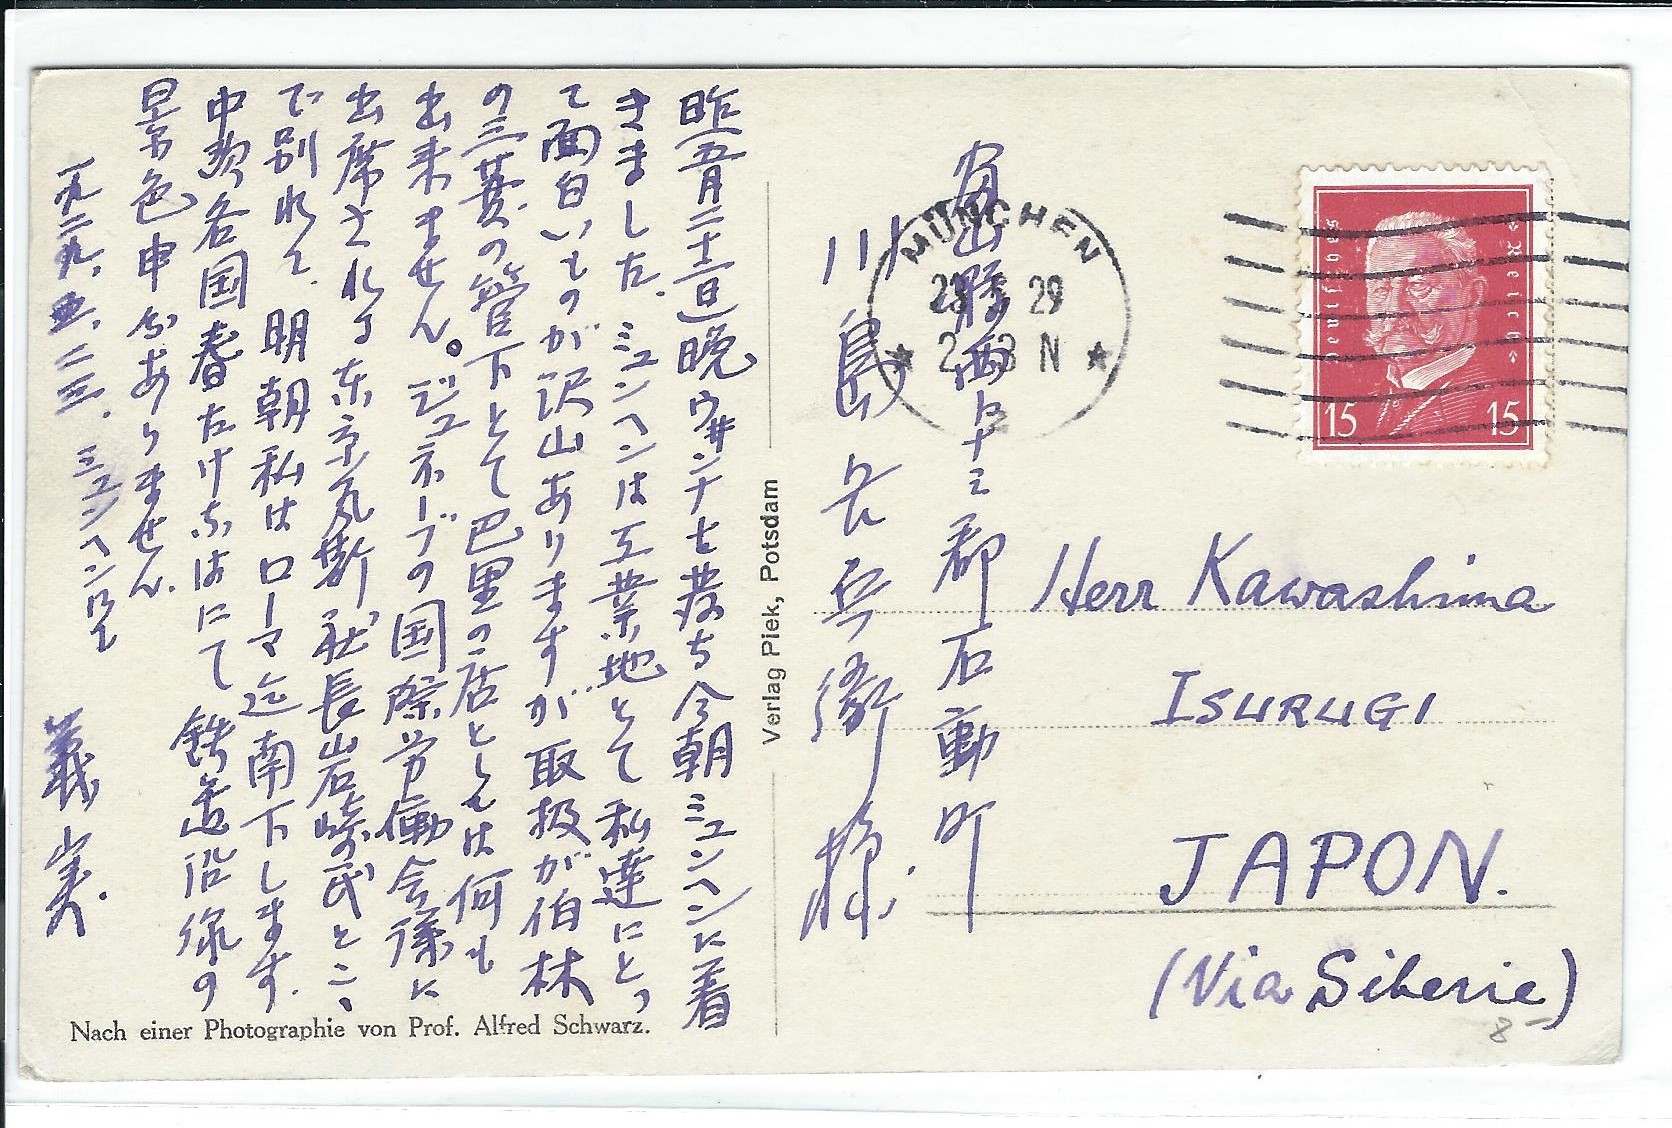 富山縣西礪波郡石動町
川島長兵衛様
Herr Kawashima
ISURUGI
JAPON.
(Via Siberie)
MÜNCHEN
29
2-3 N
Deutsches Reich
15 15
昨五月二十二日晩ウ井ンナを発ち今朝ミュンヘンに着
きました.ミュンヘンは工業地とて私達にとっ
て面白いものが沢山ありますが取扱が伯林
の三菱の管下とて巴里の店としては何も
出来ません。ジュネーブの国際労働会議に
出席される東京瓦斯社長岩崎氏とここ
で別れて.明朝私はローマ迄南下します.
中欧各国春たけなはにて鉄道沿線の
景色申分ありません.
一九二九.五.二三.ミュンヘンにて
義美.
Verlag Piek, Potsdam
Nach einer Photographie von Prof. Alfred Schwarz.
8-